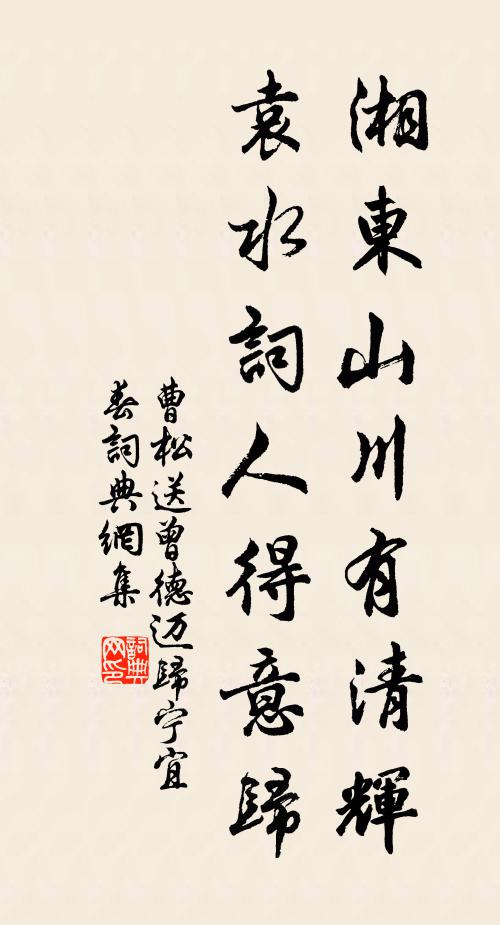 湘東山川有清輝
袁水詞人得意歸
曹松送曾德迈歸宁宜
春詞典網集
詞典网印